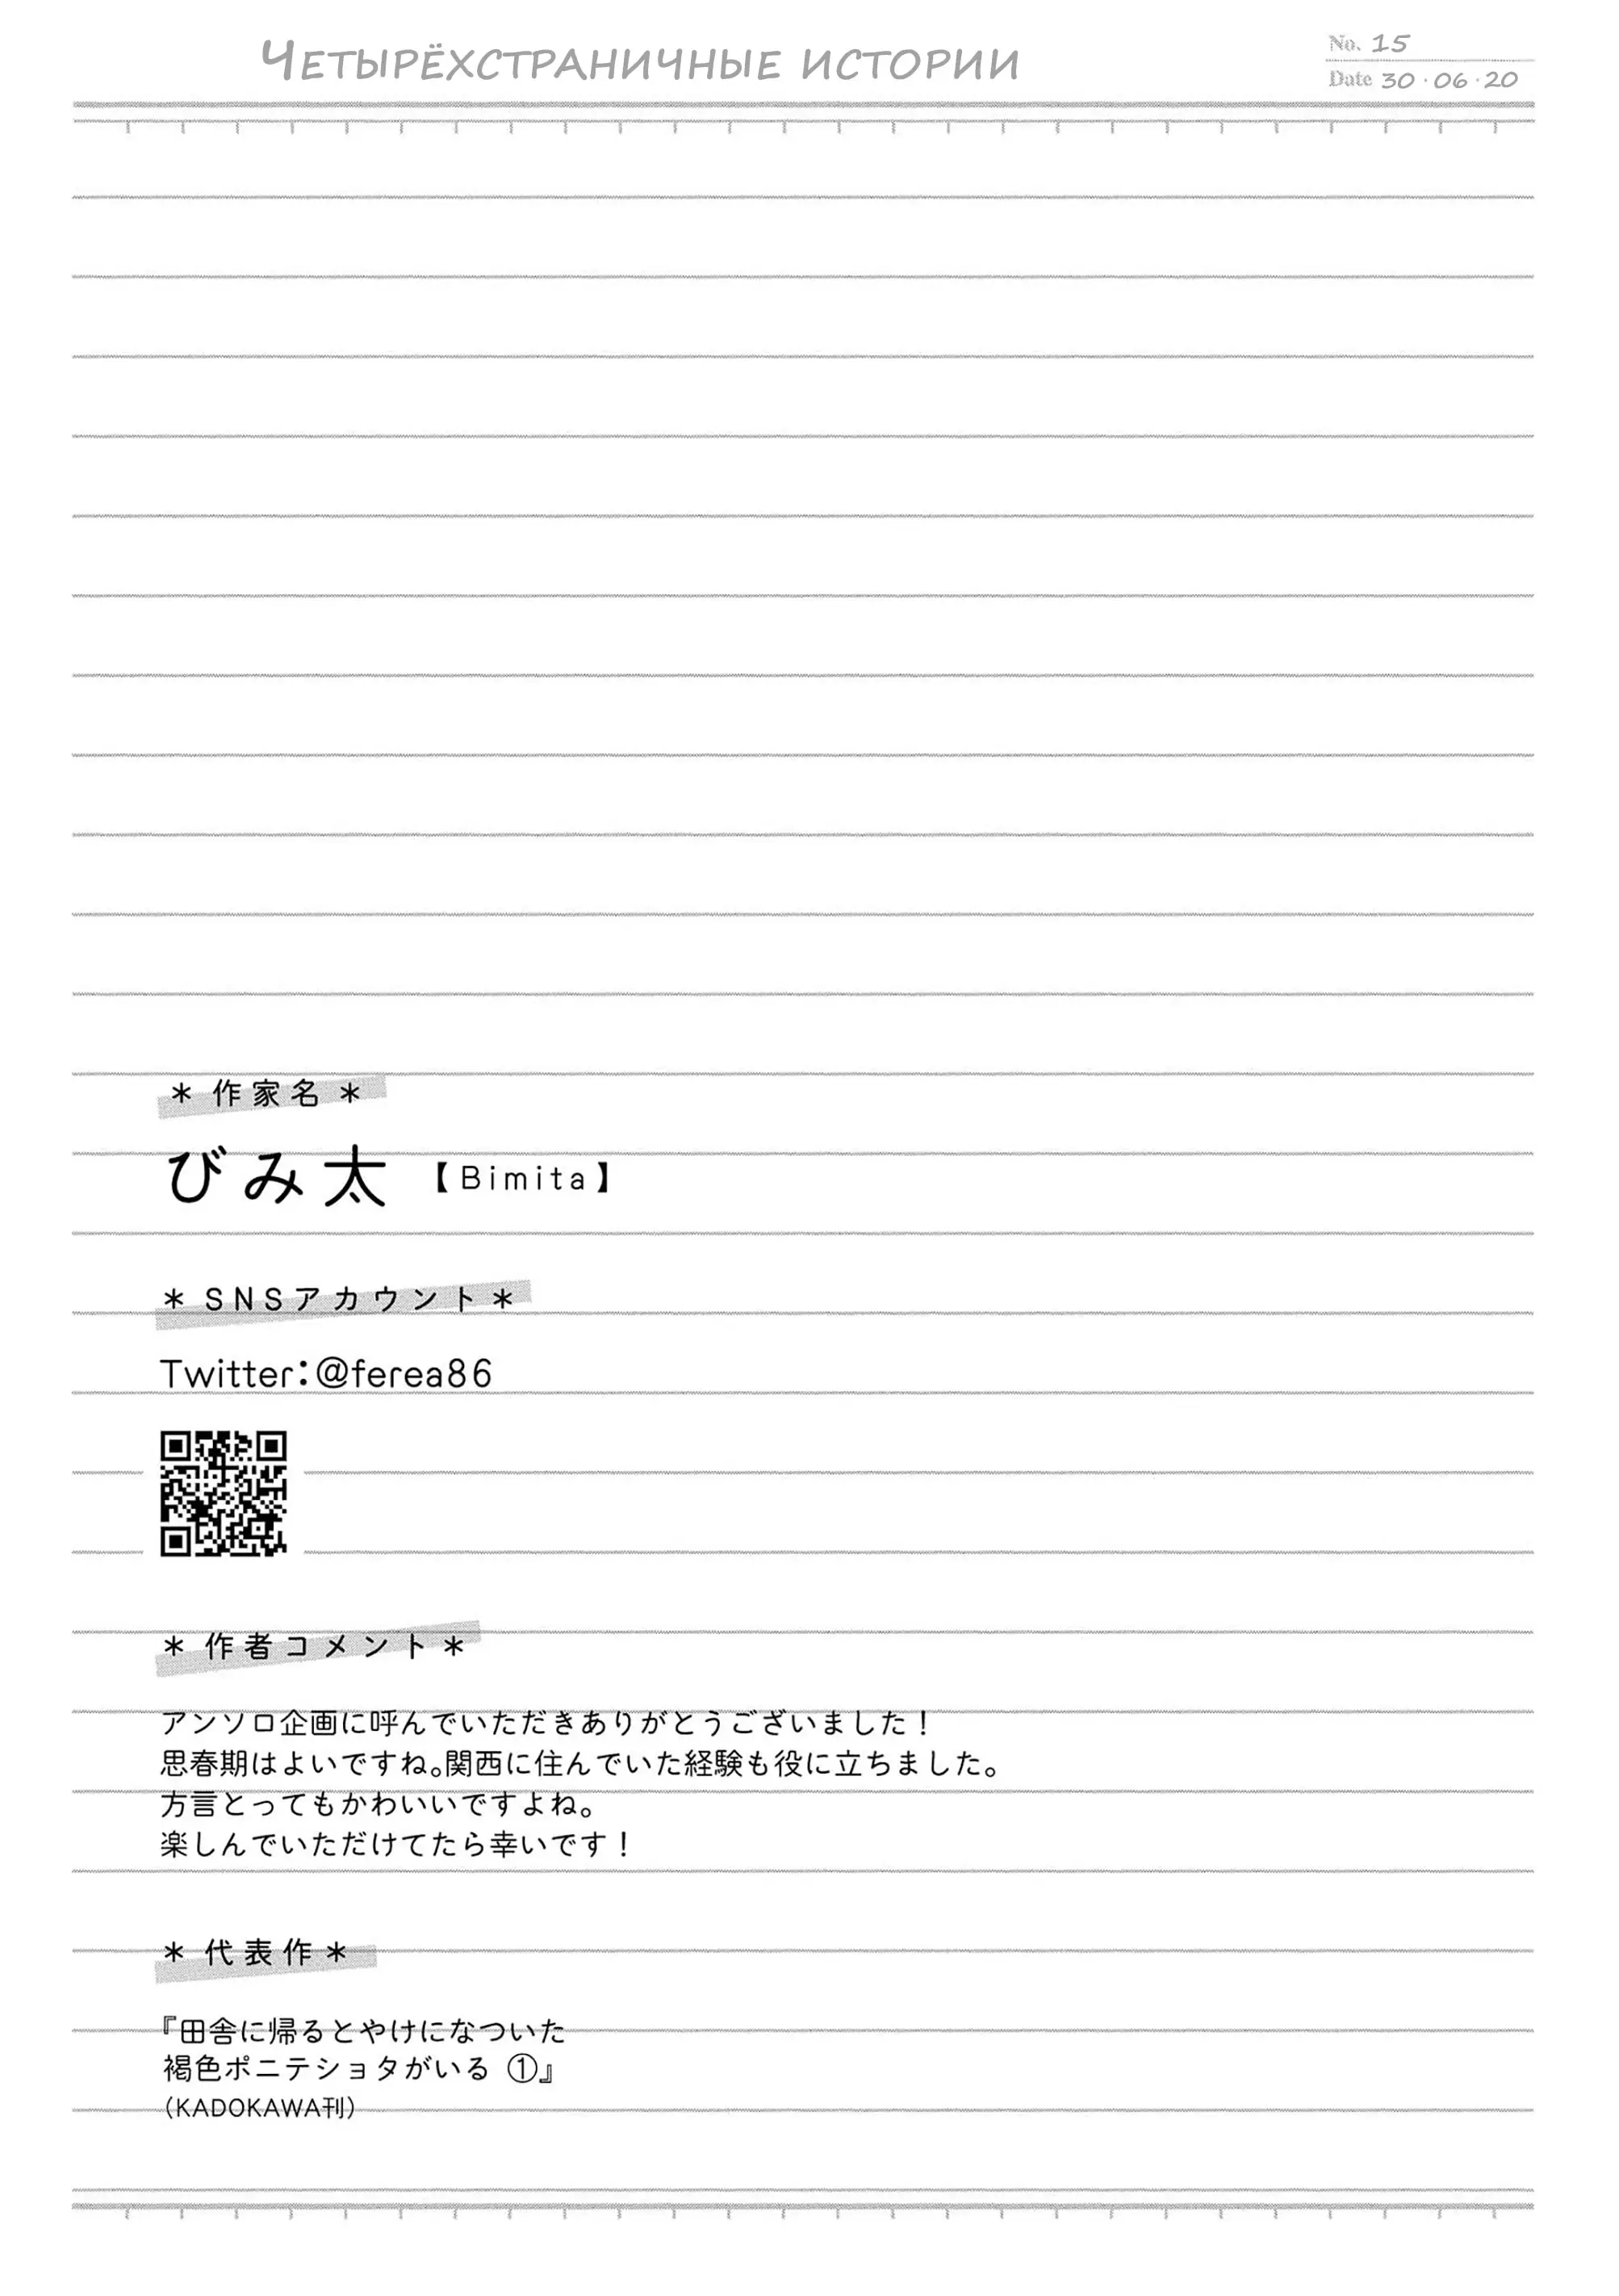 Четырёхстраничные истории
No. 15
Date 30・06・20
＊ 作家名 ＊
びみ太 【Bimita】
＊ SNSアカウント ＊
Twitter：@ferea86
＊ 作者コメント ＊
アンソロ企画に呼んでいただきありがとうございました！
思春期はよいですね。関西に住んでいた経験も役に立ちました。
方言とってもかわいいですよね。
楽しんでいただけてたら幸いです！
＊ 代表作 ＊
『田舎に帰るとやけになついた
褐色ポニテショタがいる ①』
（KADOKAWA刊）